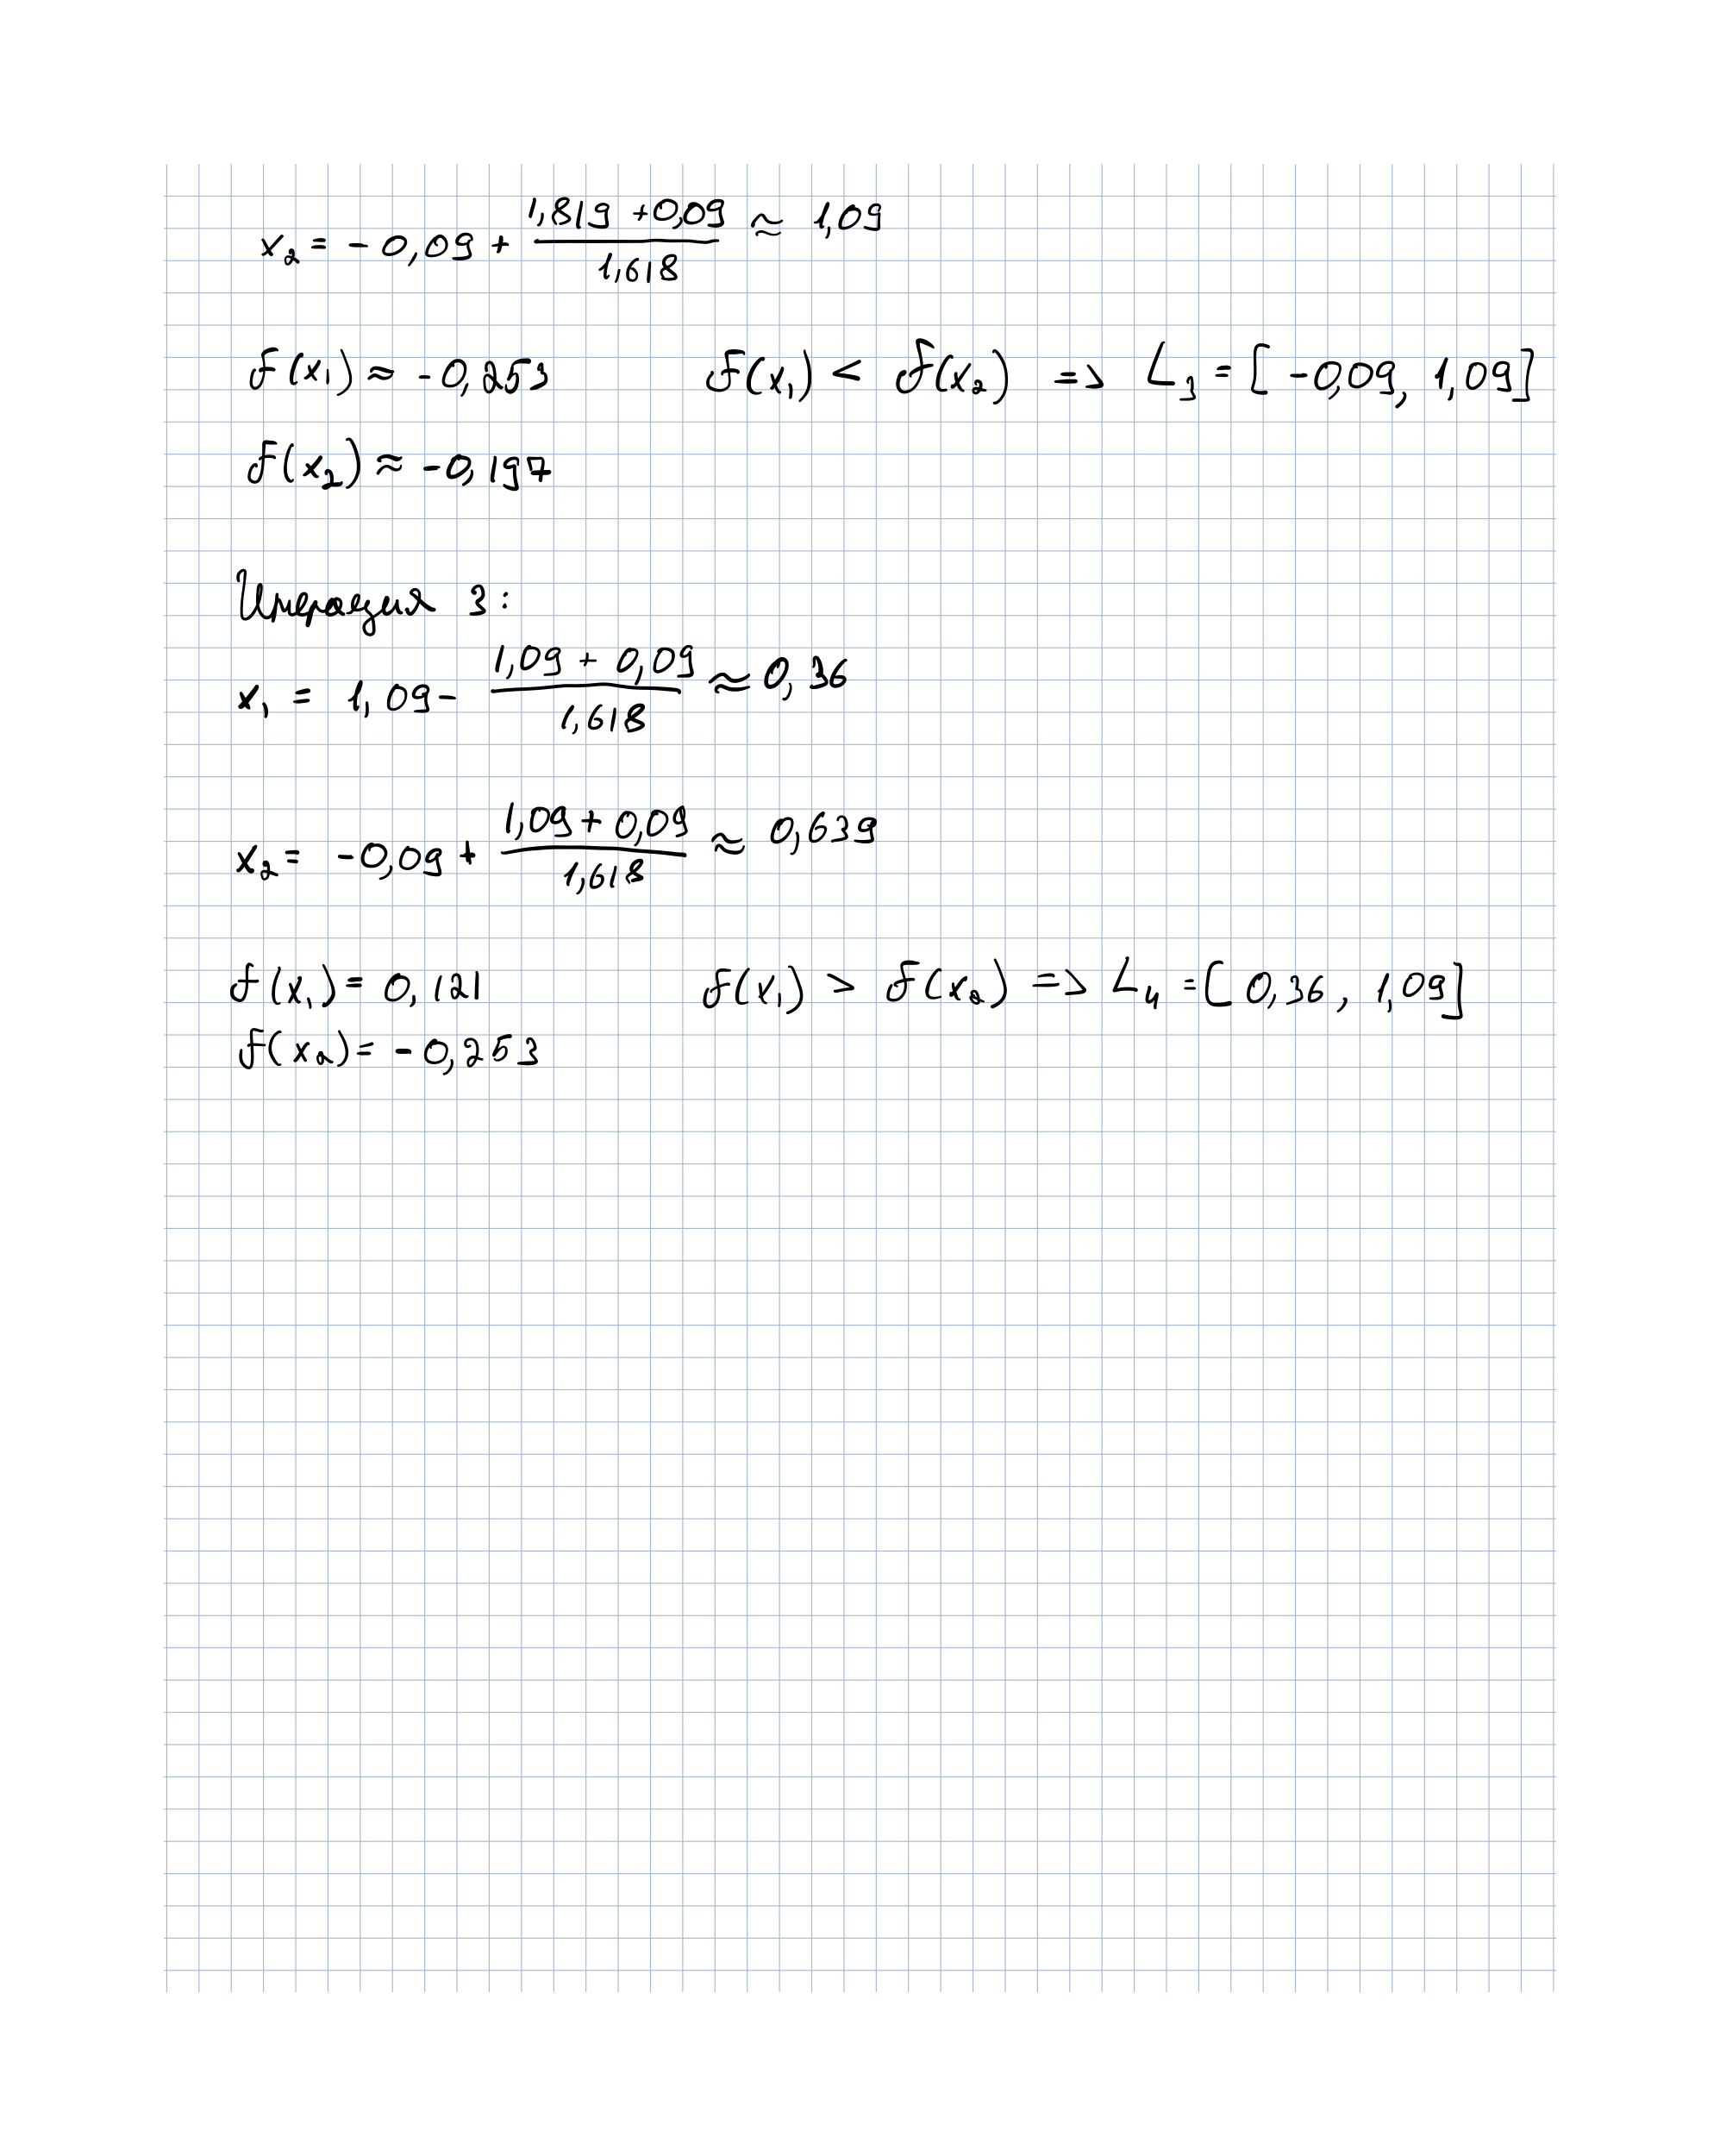 x₂ = - 0,09 + (1,819 + 0,09) / 1,618 ≈ 1,09
f(x₁) ≈ - 0,253 f(x₁) < f(x₂) => L₃ = [ - 0,09, 1,09]
f(x₂) ≈ - 0,197
Итерация 3:
x₁ = 1,09 - (1,09 + 0,09) / 1,618 ≈ 0,36
x₂ = - 0,09 + (1,09 + 0,09) / 1,618 ≈ 0,639
f(x₁) = 0,121 f(x₁) > f(x₂) => L₄ = [ 0,36 , 1,09]
f(x₂) = - 0,253